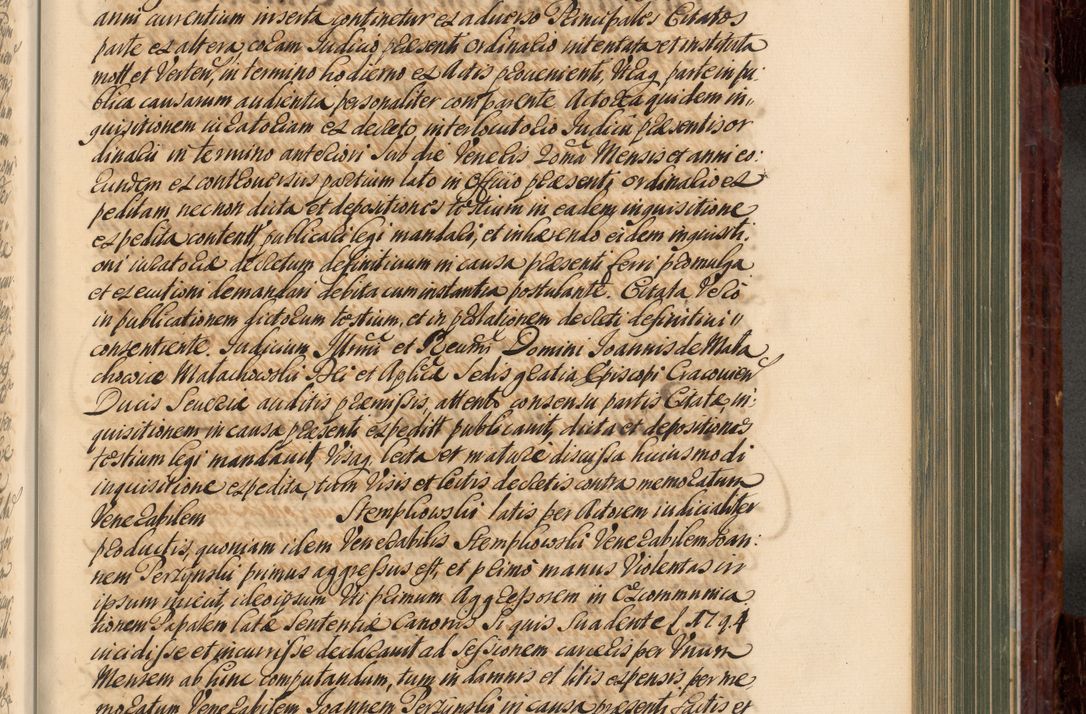 anni currentium inserta continetur ex adverso Principales Citatos
parte ex altera, coram Judicio praesenti ordinario intentata et instituta
mott et Verten, in termino hodierno ex Actis proveniente, Utraq parte in pu:
blica causarum audientia personaliter comparente Actorea quidem in„
quisitionem iuratoriam ex decreto interlocutorio Judicii praesentis or
dinarii in termino anteriori Sub die Veneris 20ma Mensis et anni eo:
rundem ex controversiis partium lato in officio praesenti ordinario ex
peditam necnon dicta et depositiones testium in eadem inquisitione
expedita content, publicari legi mandari, et inhaerendo eidem inquisiti:
oni iuratoriae decretum definitivum in causa praesenti ferri promulga
et executioni demandari debita cum instantia postulante. Citata Vero
in publicationem dictorum testium, et in prolationem decreti definitivi„
consentiente. Judicium Illrmi et Reverendmi Domini Joannis de Mala
chowice Malachowski Dei et Aplicae Sedis gratia Episcopi Cracovien
Ducis Severiae auditis praemissis, attento consensu partis Citatae, in:
quisitionem in causa praesenti expedit publicavit, dicta et depositiones
testium legi mandavit, Visaq lecta et mature discussa huiusmodi
inquisitione expedita, tum Visis et lectis decretis contra memoratum
Venerabilem Stempkowski latis per Actorem iudicialiter
productis, quoniam idem Venerabilis Stempkowski Venerabilem Joan:
nem Perzynski primus aggressus est, et primo manus Violentas in
ipsum iniecit, ideo ipsum Uti primum Aggressorem in Excommunica
tionem Papalem latae Sententiae Canonis Si quis Suadente f. 1794
incidisse et incurrisse declaravit ad Sessionem carceris per Unum
Mensem ab hinc computandum, tum in damnis et litis expensis per me
moratum Venerabilem Joannem Perzynski in causa praesenti factis et